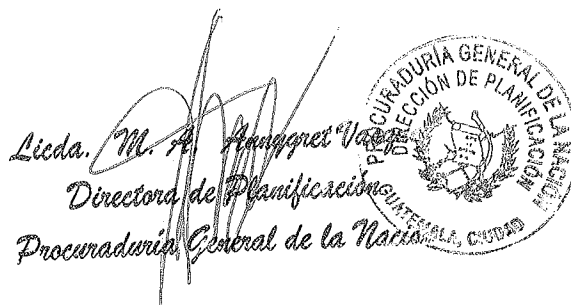 Licda. M. A. Annggret
Directora de Planificación
Procuraduría General de la Nación
PROCURADURÍA GENERAL DE LA NACIÓN
DIRECCIÓN DE PLANIFICACIÓN
GUATEMALA, CIUDAD